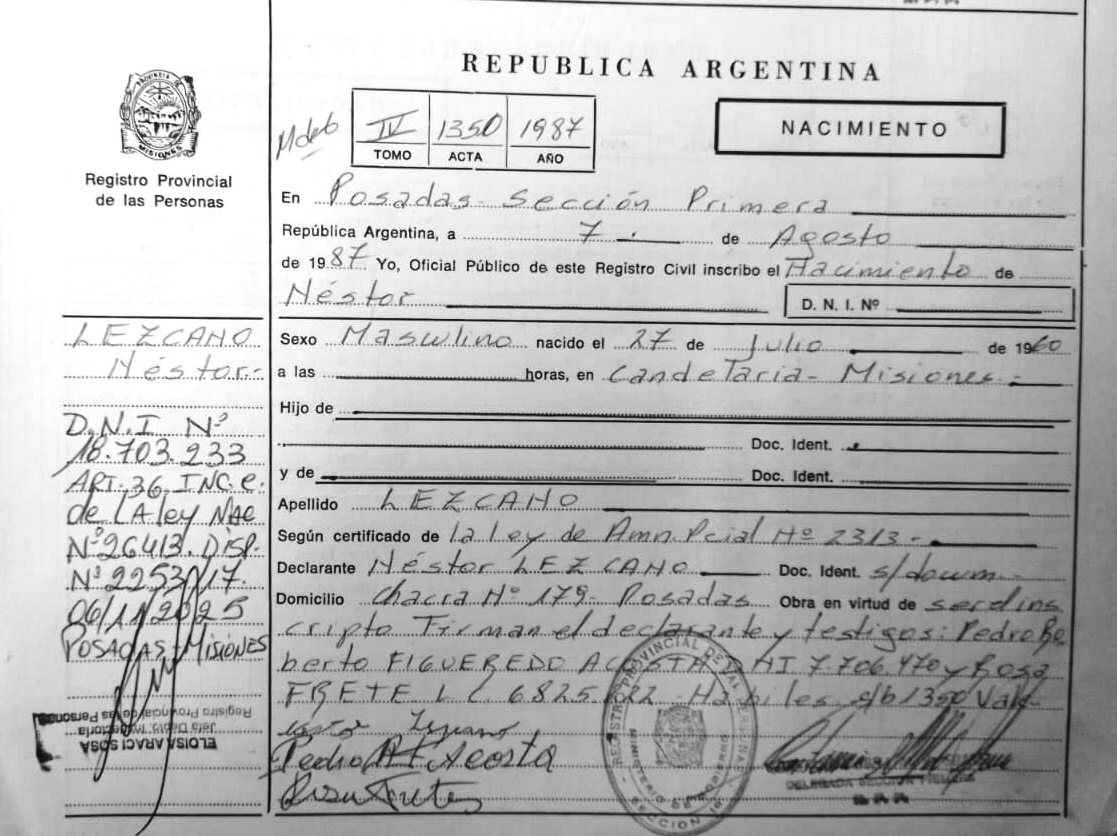 REPUBLICA ARGENTINA
PROVINCIA DE
MISIONES
Registro Provincial
de las Personas
IV 1350 1987
TOMO ACTA AÑO
NACIMIENTO
En Posadas - Sección Primera
República Argentina, a 7 de Agosto
de 1987 Yo, Oficial Público de este Registro Civil inscribo el Nacimiento de
Néstor D. N. I. Nº
Sexo Masculino nacido el 27 de Julio de 1960
a las horas, en Candelaria - Misiones.-
Hijo de
Doc. Ident.
y de Doc. Ident.
Apellido LEZCANO
Según certificado de la Ley de Amn. Pcial Nº 2313.-
Declarante Néstor LEZCANO Doc. Ident. s/docum.
Domicilio Chacra Nº 179 - Posadas Obra en virtud de ser el ins
cripto Firman el declarante y testigos: Pedro Ro
berto FIGUEREDO ACOSTA DNI 7.706.470 y Rosa
FRETE L.C. 6.825.022 - Habiles s/b 1350 Vale
Pedro Acosta
Rosa Frete
LEZCANO
Néstor.-
D.N.I Nº
18.703.233
ART. 36 INC. C.
de LA ley NAC
Nº 26413. DISP.
Nº 2253/17.
06/11/2025
POSADAS - MISIONES
Registro Provincial de las Personas
ELOISA ARACI SOSA
REGISTRO PROVINCIAL DE LAS PERSONAS
MINISTERIO DE GOBIERNO
SECCION 1º
DELEGADA SECCION PRIMERA